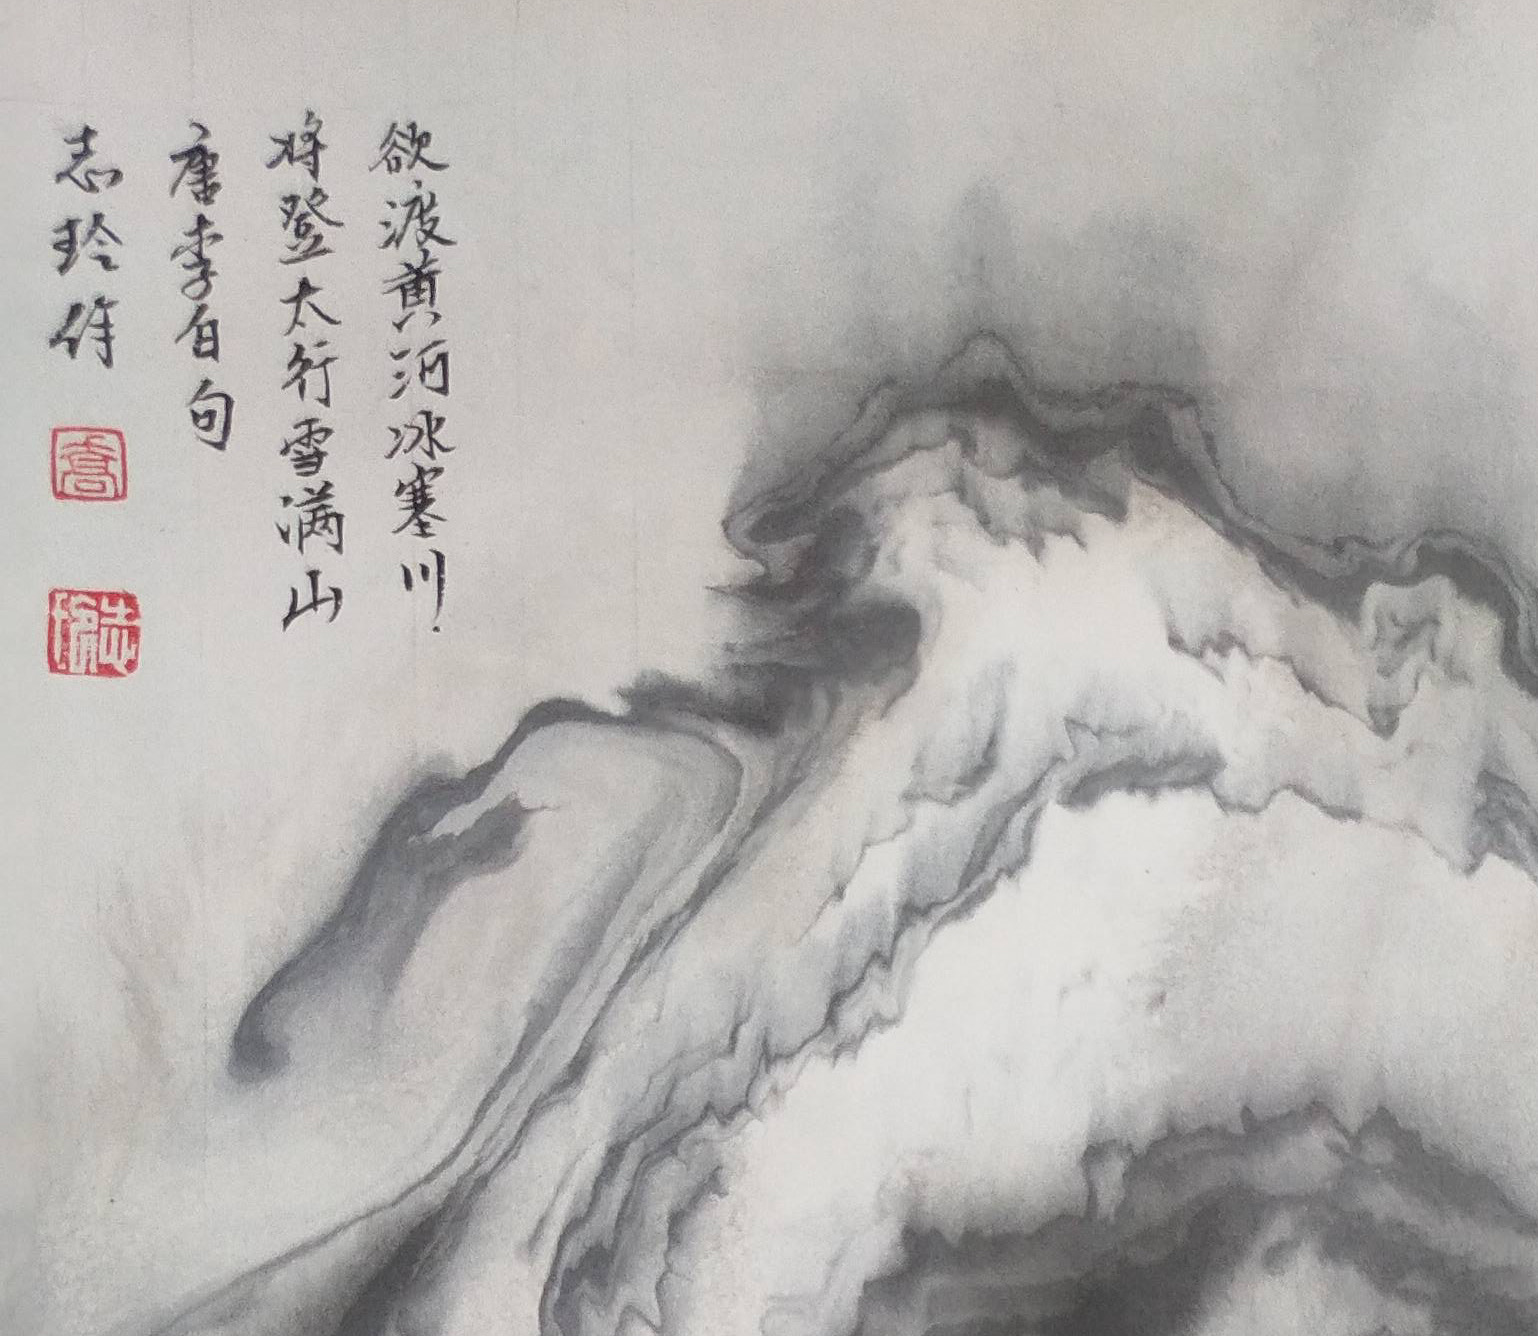 欲渡黄河冰塞川.
将登太行雪满山
唐李白句
志玲作